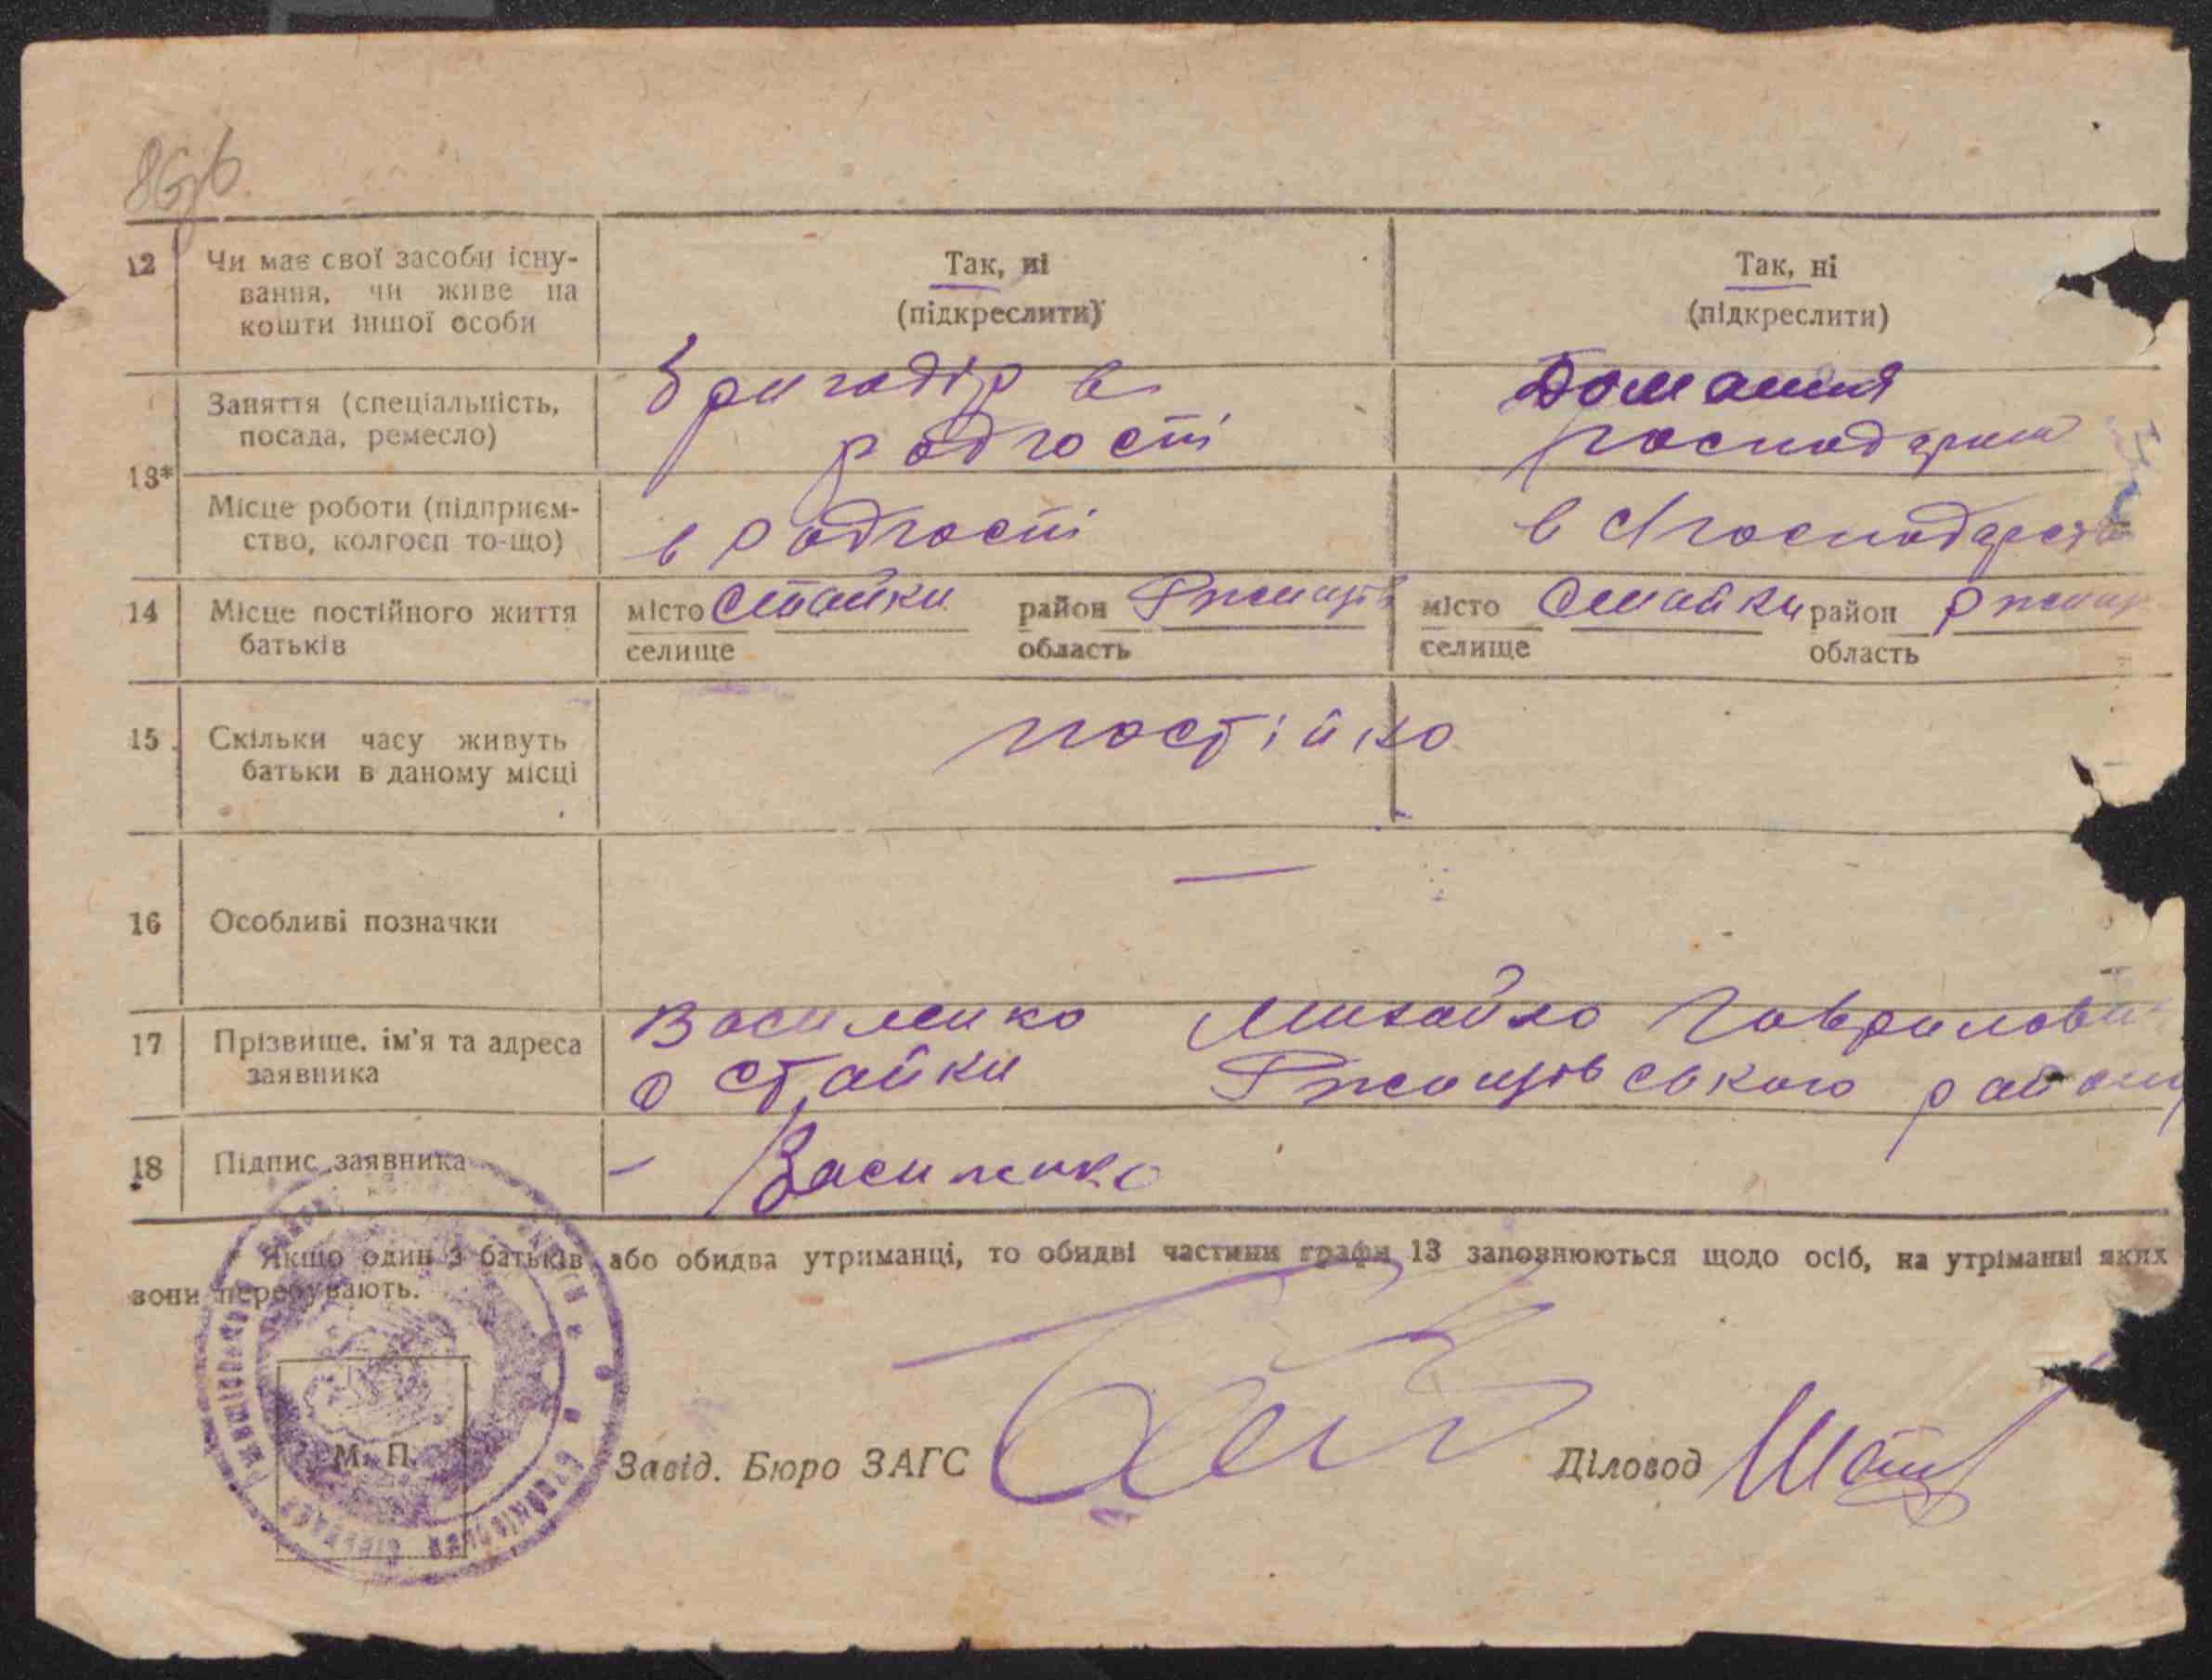 12 Чи має свої засоби існу-
вання, чи живе на
кошти іншої особи
Так, ні
(підкреслити)
Так, ні
(підкреслити)
13*
Заняття (спеціальність,
посада, ремесло)
Бригадір в
радгоспі
Домашня
господарка
Місце роботи (підприєм-
ство, колгосп то-що)
в радгоспі
в господарстві
14 Місце постійного життя
батьків
місто Стайки район Ржищів
селище область
місто Стайки район Ржищ
селище область
15 Скільки часу живуть
батьки в даному місці
постійно
16 Особливі позначки
—
17 Прізвище, ім'я та адреса
заявника
Василенко Михайло Гаврилови
с Стайки Ржищівського району
18 Підпис заявника
- Василенко
Якщо один з батьків або обидва утриманці, то обидві частини графи 13 заповнюються щодо осіб, на утріманні яких
вони перебувають.
М. П.
Завід. Бюро ЗАГС
Діловод